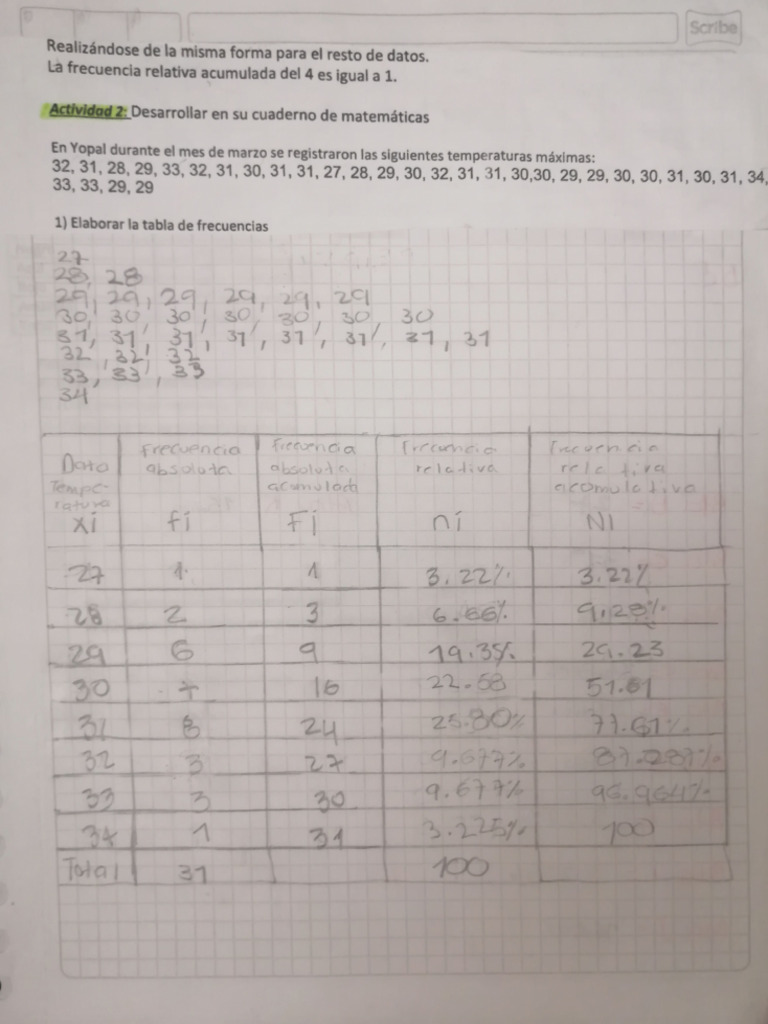 Scribe
Realizándose de la misma forma para el resto de datos.
La frecuencia relativa acumulada del 4 es igual a 1.
Actividad 2: Desarrollar en su cuaderno de matemáticas
En Yopal durante el mes de marzo se registraron las siguientes temperaturas máximas:
32, 31, 28, 29, 33, 32, 31, 30, 31, 31, 27, 28, 29, 30, 32, 31, 31, 30,30, 29, 29, 30, 30, 31, 30, 31, 34,
33, 33, 29, 29
1) Elaborar la tabla de frecuencias
27
28, 28
29, 29, 29, 29, 29, 29
30, 30, 30, 30, 30, 30, 30
31, 31, 31, 31, 31, 31, 31, 31
32, 32, 32
33, 33, 33
34
Dato Tempe- ratura xi | Frecuencia absoluta fi | Frecuencia absoluta acumulada Fi | Frecuencia relativa ni | Frecuencia relativa acomulativa Ni
27 1 1 3.22% 3.22%
28 2 3 6.66% 9.28%
29 6 9 19.35% 29.23
30 7 16 22.58 51.61
31 8 24 25.80% 77.61%
32 3 27 9.677% 87.287%
33 3 30 9.677% 96.964%
34 1 31 3.225% 100
Total 31 100